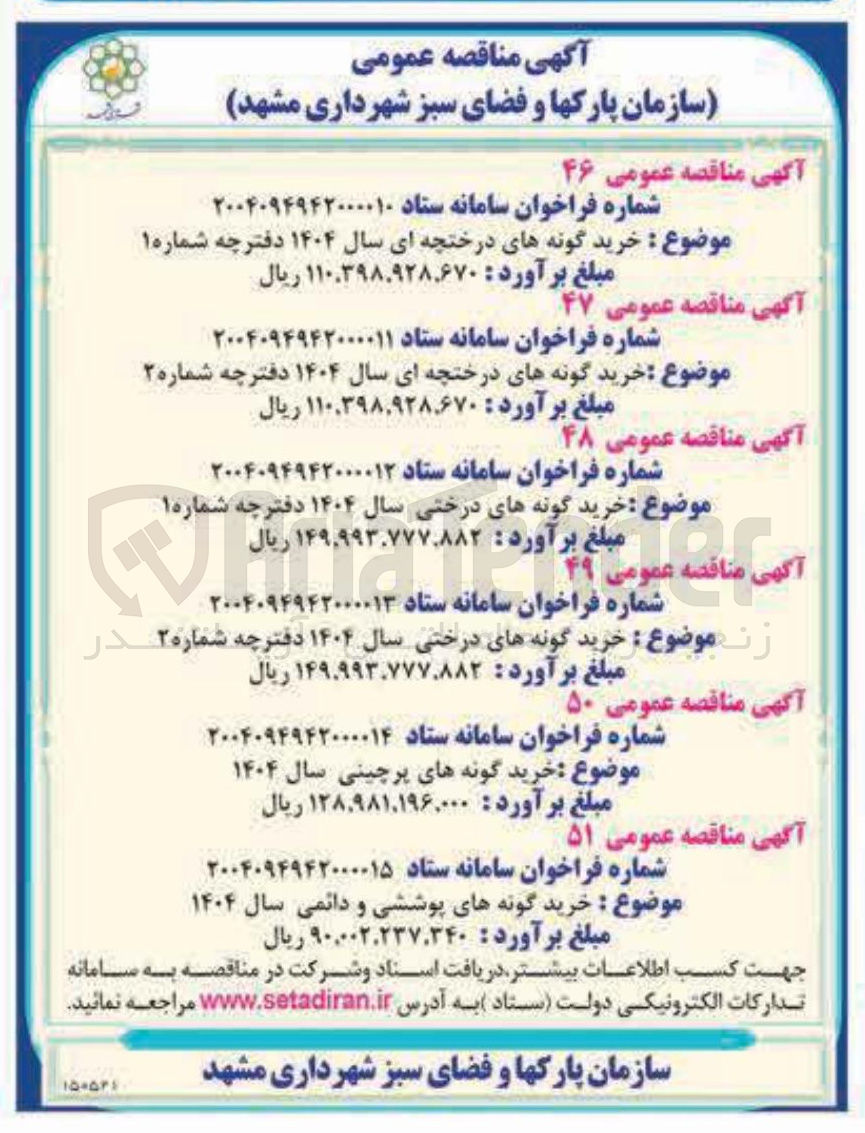 آگهی مناقصه عمومی
(سازمان پارکها و فضای سبز شهرداری مشهد)
آگهی مناقصه عمومی ۴۶
شماره فراخوان سامانه ستاد ۲۰۰۴۰۹۴۹۴۲۰۰۰۰۱۰
موضوع : خرید گونه های درختچه ای سال ۱۴۰۴ دفترچه شماره۱
مبلغ برآورد : ۱۱۰.۳۹۸.۹۲۸.۶۷۰ ریال
آگهی مناقصه عمومی ۴۷
شماره فراخوان سامانه ستاد ۲۰۰۴۰۹۴۹۴۲۰۰۰۰۱۱
موضوع :خرید گونه های درختچه ای سال ۱۴۰۴ دفترچه شماره۲
مبلغ برآورد : ۱۱۰.۳۹۸.۹۲۸.۶۷۰ ریال
آگهی مناقصه عمومی ۴۸
شماره فراخوان سامانه ستاد ۲۰۰۴۰۹۴۹۴۲۰۰۰۰۱۲
موضوع :خرید گونه های درختی سال ۱۴۰۴ دفترچه شماره۱
مبلغ برآورد : ۱۴۹.۹۹۳.۷۷۷.۸۸۲ ریال
آگهی مناقصه عمومی ۴۹
شماره فراخوان سامانه ستاد ۲۰۰۴۰۹۴۹۴۲۰۰۰۰۱۳
موضوع : خرید گونه های درختی سال ۱۴۰۴ دفترچه شماره۲
مبلغ برآورد : ۱۴۹.۹۹۳.۷۷۷.۸۸۲ ریال
آگهی مناقصه عمومی ۵۰
شماره فراخوان سامانه ستاد ۲۰۰۴۰۹۴۹۴۲۰۰۰۰۱۴
موضوع :خرید گونه های پرچینی سال ۱۴۰۴
مبلغ برآورد : ۱۲۸.۹۸۱.۱۹۶.۰۰۰ ریال
آگهی مناقصه عمومی ۵۱
شماره فراخوان سامانه ستاد ۲۰۰۴۰۹۴۹۴۲۰۰۰۰۱۵
موضوع : خرید گونه های پوششی و دائمی سال ۱۴۰۴
مبلغ برآورد : ۹۰.۰۰۲.۲۳۷.۳۴۰ ریال
جهت کسب اطلاعات بیشتر،دریافت اسناد وشرکت در مناقصه به سامانه
تدارکات الکترونیکی دولت (ستاد )به آدرس www.setadiran.ir مراجعه نمائید.
سازمان پارکها و فضای سبز شهرداری مشهد
AriaTender